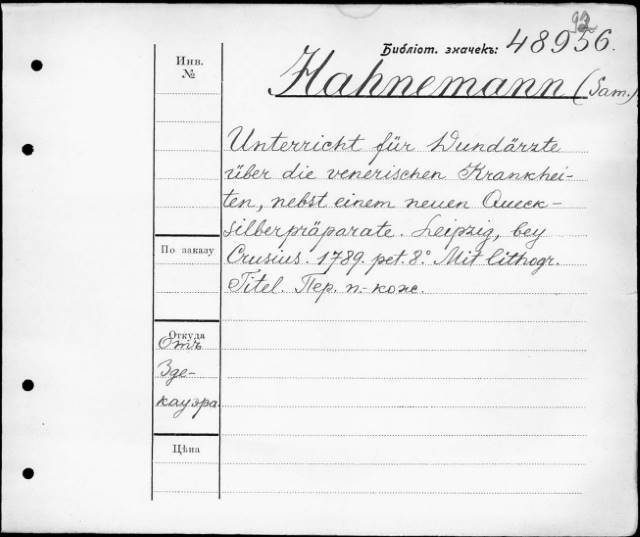 92
Библіот. значекъ: 48956.
Инв.
№
Hahnemann (Sam.)
Unterricht für Wundärzte
über die venerischen Krankhei-
ten, nebst einem neuen Queck-
silberpräparate. Leipzig, bey
Crusius. 1789. pet. 8.° Mit lithogr.
Titel. Пер. п.-кож.
По заказу
Откуда
Отъ
Зде-
кауэра.
Цѣна